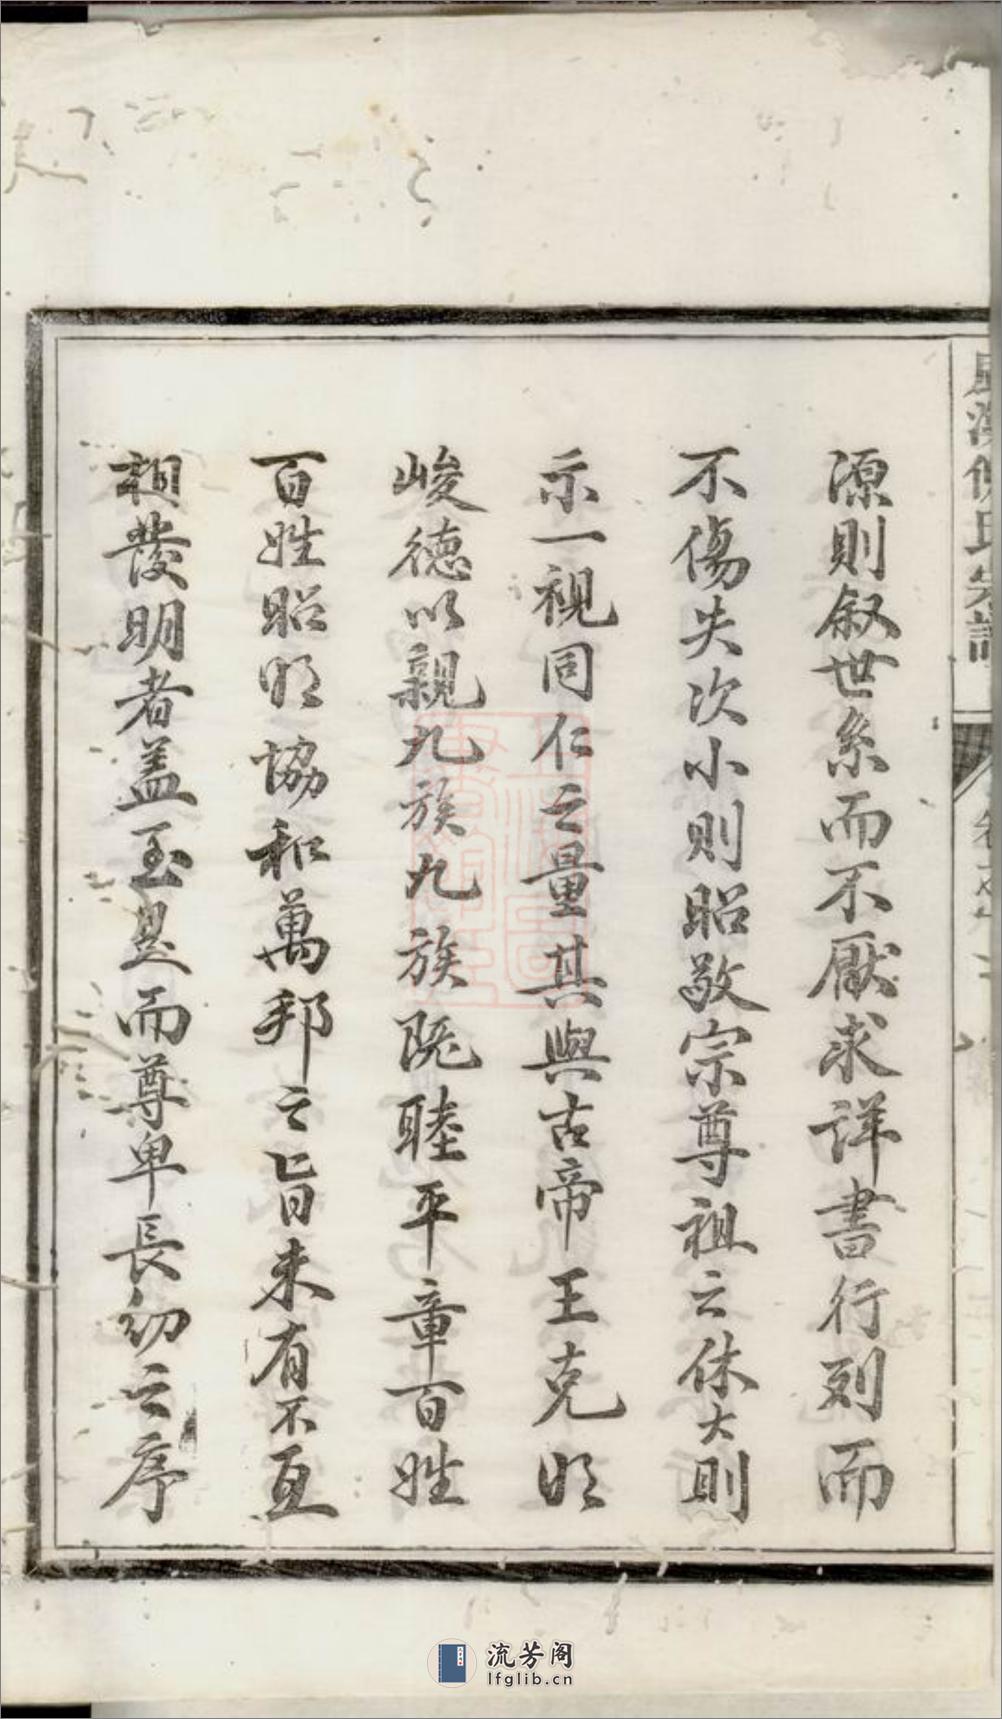 源則叙世系而不厭求詳書行列而
不傷失次小則昭敬宗尊祖之休大則
示一視同仁之量其與古帝王克明
峻德以親九族九族既睦平章百姓
百姓昭明協和萬邦之旨未有不互
相發明者盖至是而尊卑長幼之序
流芳阁
lfglib.cn